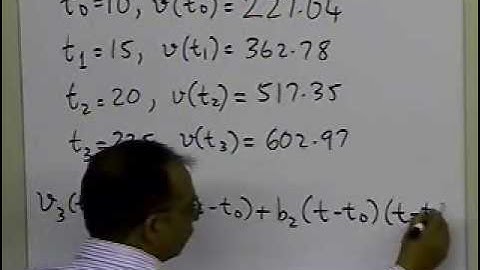 t₀=10, v(t₀)=227.04
t₁=15, v(t₁)=362.78
t₂=20, v(t₂)=517.35
t₃=22.5, v(t₃)=602.97
v₃( -t₀)+b₂(t-t₀)(t-t